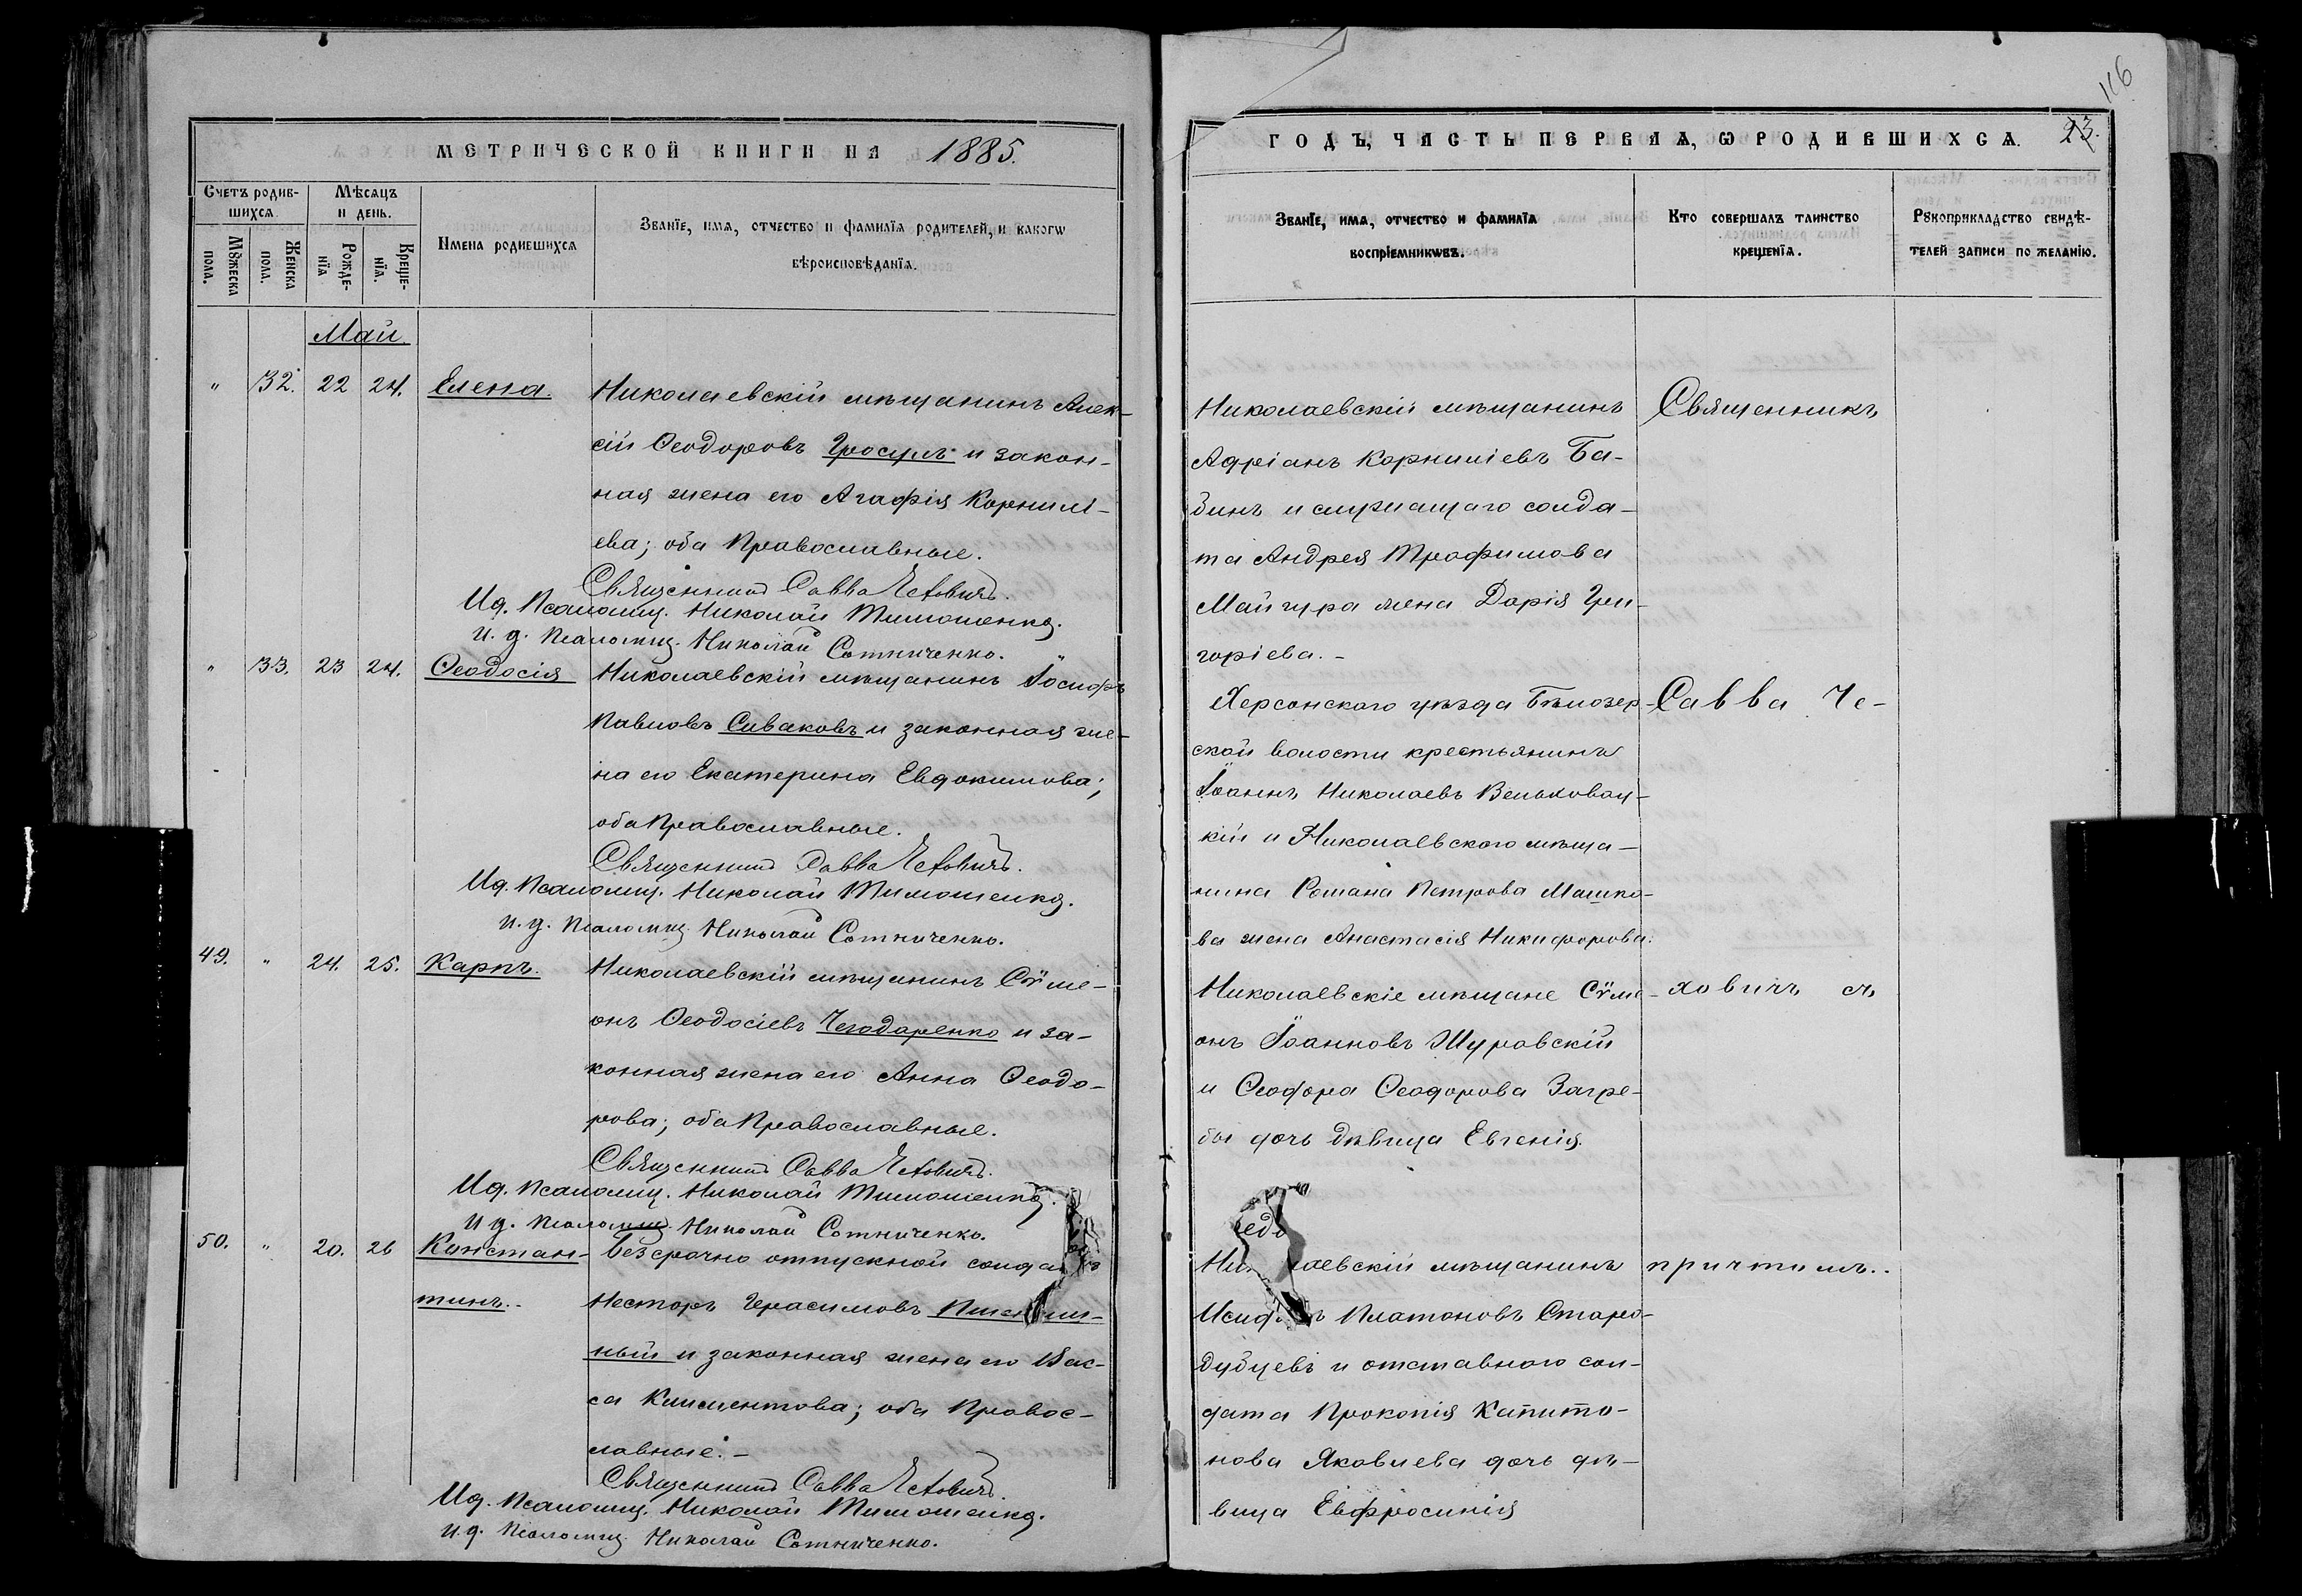 МЕТРИЧЕСКОЙ КНИГИ НА 1885.
Счетъ родив-
шихся.
Мѣсяцъ
и день.
Имена родившихся
Званїе, имя, отчество и фамилїа родителей, и какогѡ
вѣроисповѣданїа.
Мꙋжеска
пола.
Женска
пола.
Рожде-
нїа
Креще-
нїа.
Май.
" 32. 22 24. Елена. Николаевскій мѣщанинъ Алек-
сій Ѳеодоровъ Гросулъ и закон-
ная жена его Агафія Корнилі-
ева; оба Православные.
Священникъ Савва Чеховичъ.
И д. Псаломщ. Николай Тимошенко.
и. д. Псаломщ. Николай Сотниченко.
" 33. 23 24. Ѳеодосія Николаевскій мѣщанинъ Іосифъ
Павловъ Сиваковъ и законная же-
на его Екатерина Евдокимова;
оба Православные.
Священникъ Савва Чеховичъ.
И д. Псаломщ. Николай Тимошенко.
и. д. Псаломщ. Николай Сотниченко.
49. " 24. 25. Карпъ. Николаевскій мѣщанинъ Сѵме-
онъ Ѳеодосіевъ Чегодаренко и за-
конная жена его Анна Ѳеодо-
рова; оба Православные.
Священникъ Савва Чеховичъ.
И д. Псаломщ. Николай Тимошенко.
и д. Псаломщ. Николай Сотниченко.
50. " 20. 26 Констан- безсрочно отпускной солда
тинъ. Несторъ Герасимовъ
ный и законная жена его Вас-
са Климентова; оба Правос-
лавные.-
Священникъ Савва Чеховичъ
И д. Псаломщ. Николай Тимошенко.
и. д. Псаломщ. Николай Сотниченко.
116
ГОДЪ, ЧАСТЬ ПЕРВАЯ, Ѡ РОДИВШИХСЯ. 23.
Званїе, имя, отчество и фамилїа
воспрїемникѡвъ.
Кто совершалъ таинство
крещенїа.
Рꙋкоприкладство свидѣ-
телей записи по желанію.
Николаевскій мѣщанинъ Священникъ
Адріанъ Корниліевъ Ба-
бинъ и служащаго солда-
та Андрея Трофимова
Майгура жена Дарія Гри-
горіева.-
Херсонского уѣзда Бѣлозер- Савва Че-
ской волости крестьянинъ
Іоаннъ Николаевъ Вельховац-
кій и Николаевского мѣща-
нина Романа Петрова Машко-
ва жена Анастасія Никифорова.
Николаевскіе мѣщане Сѵме- ховичъ съ
онъ Іоанновъ Шуровскій
и Ѳеодора Ѳеодорова Загре-
бы дочь дѣвица Евгенія.
Ни лаевскій мѣщанинъ причтомъ..
Платоновъ Старо-
дубцевъ и отставного сол-
дата Прокопія Капито-
нова Яковлева дочь дѣ-
вица Евфросинія